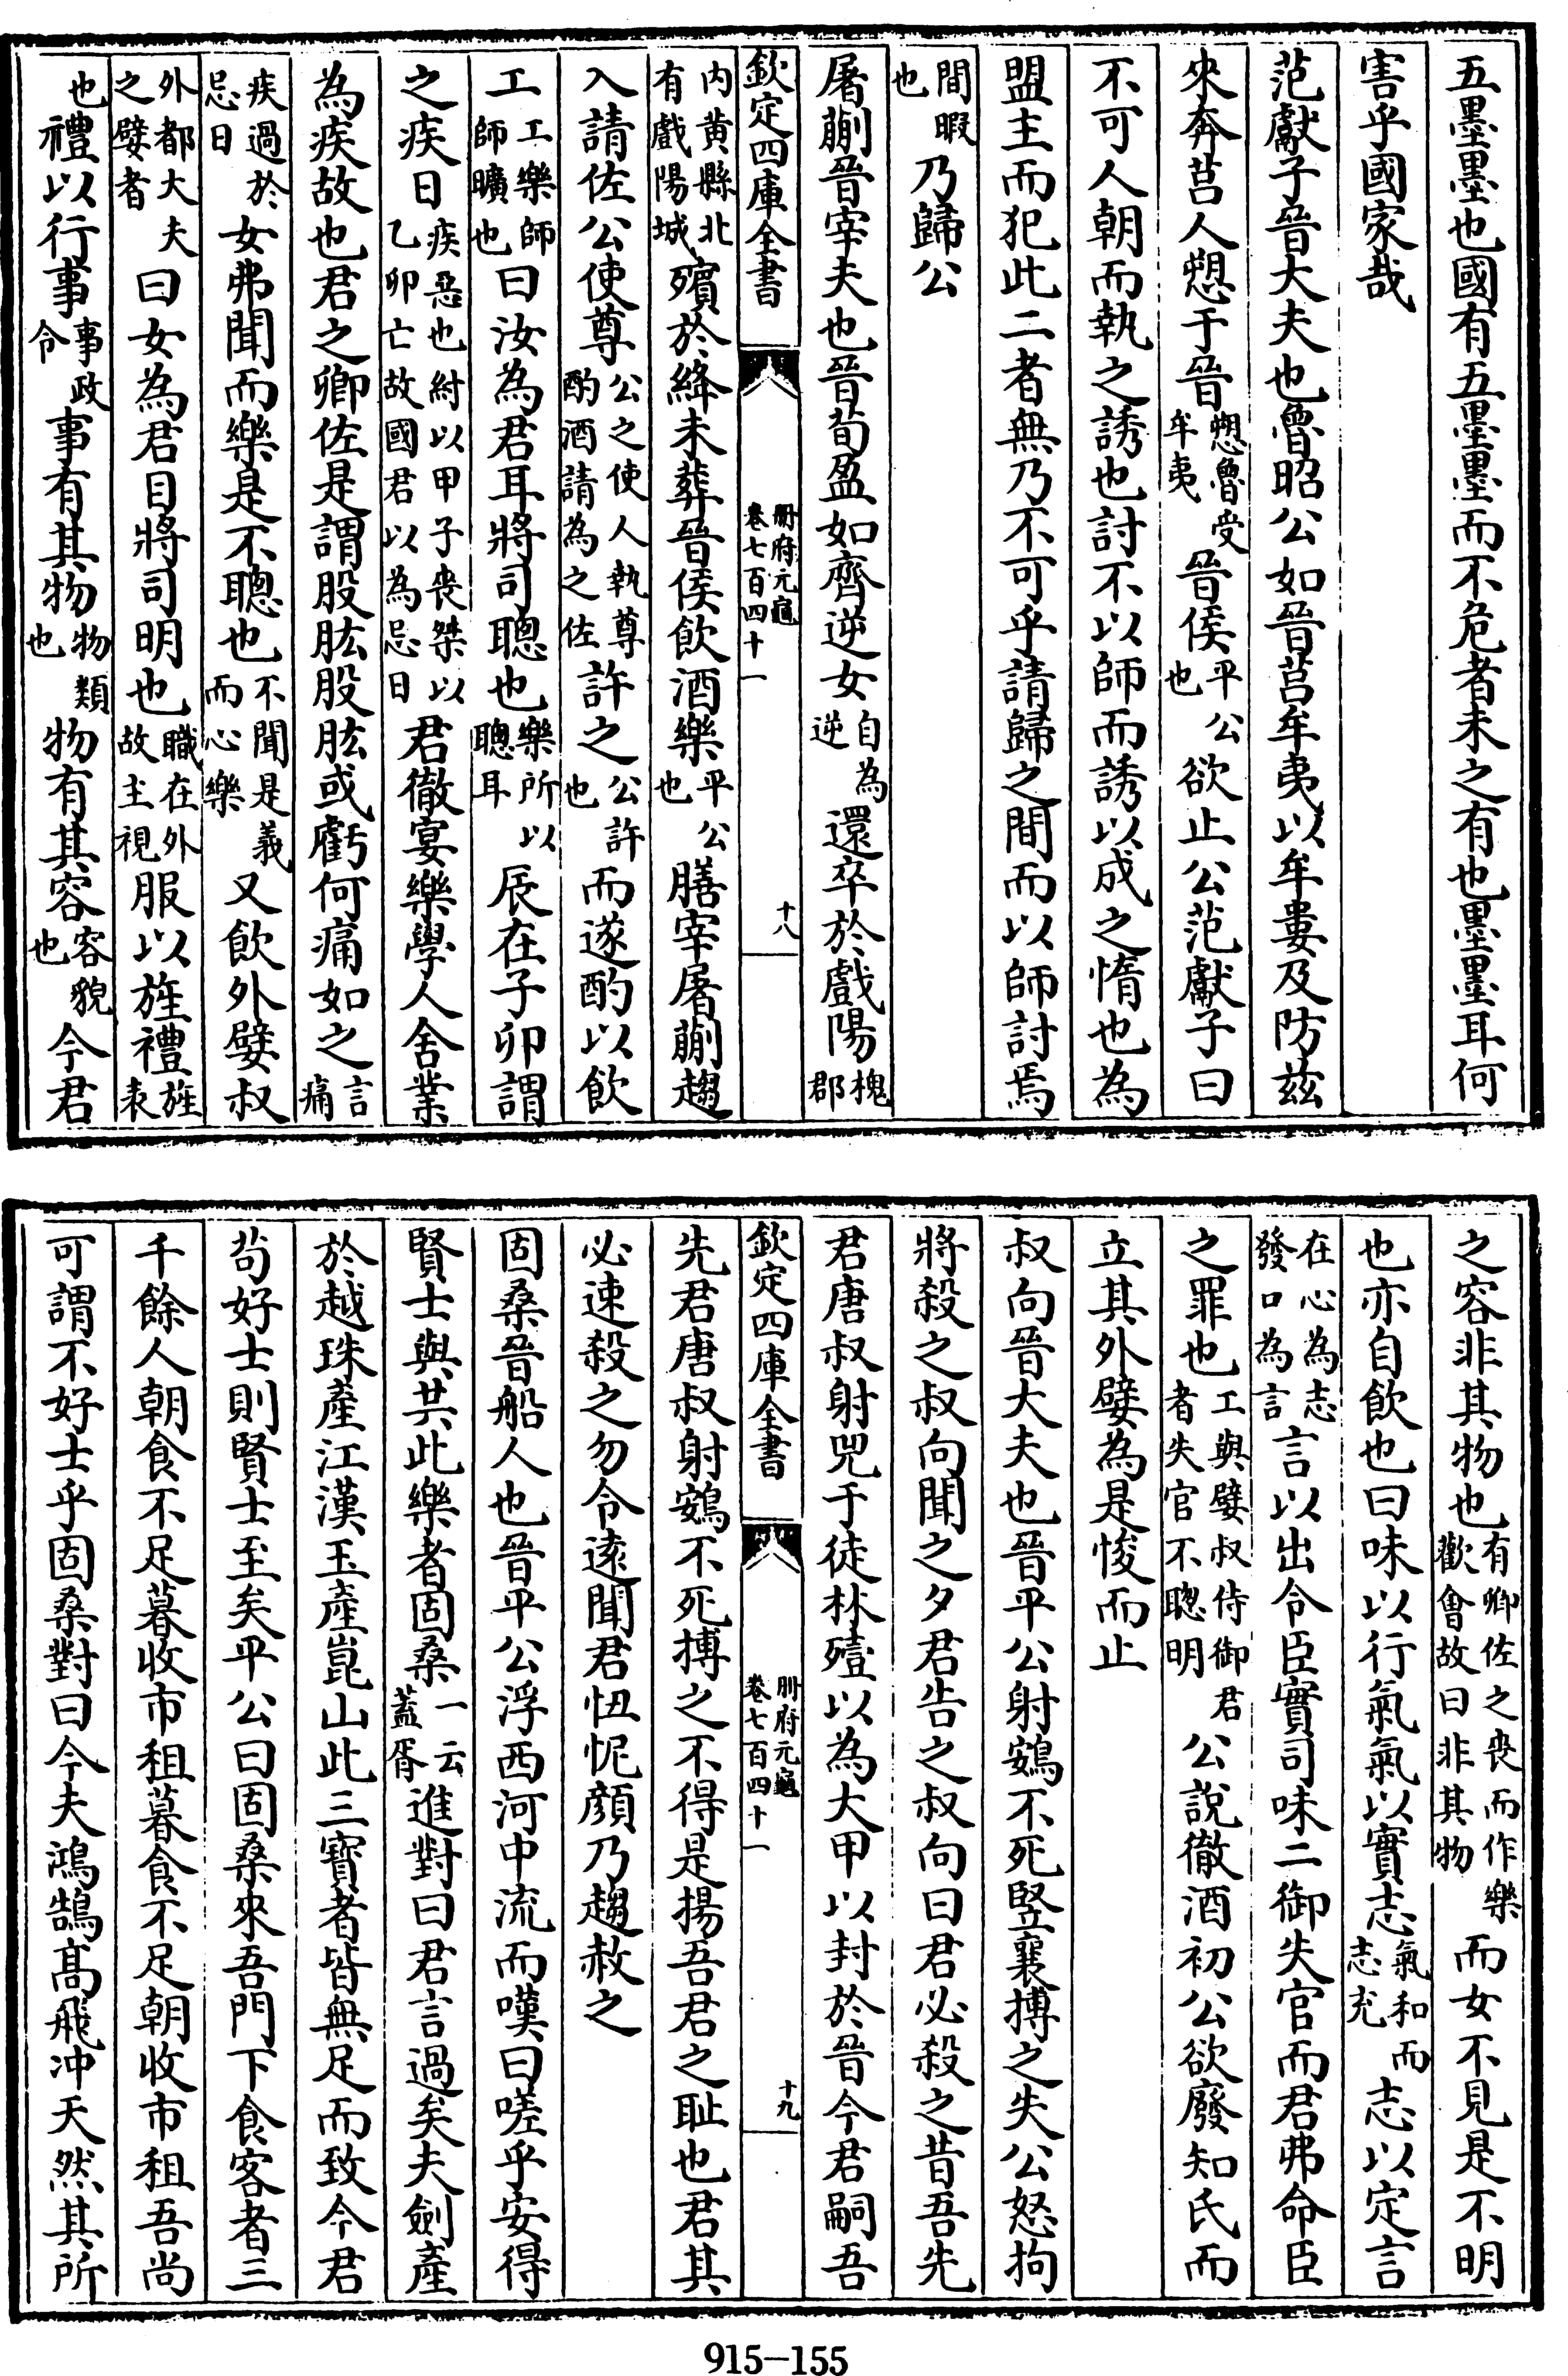 五墨墨也國有五墨墨而不危者未之有也墨墨耳何
害乎國家哉
范獻子晉大夫也魯昭公如晉莒牟夷以牟婁及防茲
來奔莒人愬于晉愬魯受牟夷晉侯平公也欲止公范獻子曰
不可人朝而執之誘也討不以師而誘以成之惰也為
盟主而犯此二者無乃不可乎請歸之間而以師討焉
間暇也乃歸公
屠蒯晉宰夫也晉荀盈如齊逆女自為逆還卒於戲陽槐郡
欽定四庫全書
冊府元龜
卷七百四十一
十八
內黃縣北有戲陽城殯於絳未葬晉侯飲酒樂平公也膳宰屠蒯趨
入請佐公使尊公之使人執尊酌酒請為之佐許之公許也而遂酌以飲
工工樂師師曠也曰汝為君耳將司聰也樂所以聰耳辰在子卯謂
之疾日疾惡也紂以甲子喪桀以乙卯亡故國君以為忌日君徹宴樂學人舍業
為疾故也君之卿佐是謂股肱股肱或虧何痛如之言痛
疾過於忌日女弗聞而樂是不聰也不聞是義而心樂又飲外嬖叔
外都大夫之嬖者曰女為君目將司明也職在外故主視服以旌禮旌表
也禮以行事事政令事有其物物類也物有其容容貌也今君
之容非其物也有卿佐之喪而作樂歡會故曰非其物而女不見是不明
也亦自飲也曰味以行氣氣以實志氣和而志充志以定言
在心為志發口為言言以出令臣實司味二御失官而君弗命臣
之罪也工與嬖叔侍御君者失官不聰明公說徹酒初公欲廢知氏而
立其外嬖為是悛而止
叔向晉大夫也晉平公射鴳不死豎襄搏之失公怒拘
將殺之叔向聞之夕君告之叔向曰君必殺之昔吾先
君唐叔射兕于徒林殪以為大甲以封於晉今君嗣吾
欽定四庫全書
冊府元龜
卷七百四十一
十九
先君唐叔射鴳不死搏之不得是揚吾君之恥也君其
必速殺之勿令遠聞君忸怩顏乃趨赦之
固桑晉船人也晉平公浮西河中流而嘆曰嗟乎安得
賢士與共此樂者固桑一云蓋胥進對曰君言過矣夫劍產
於越珠產江漢玉產崑山此三寶者皆無足而致今君
苟好士則賢士至矣平公曰固桑來吾門下食客者三
千餘人朝食不足暮收市租暮食不足朝收市租吾尚
可謂不好士乎固桑對曰今夫鴻鵠高飛冲天然其所
915-155